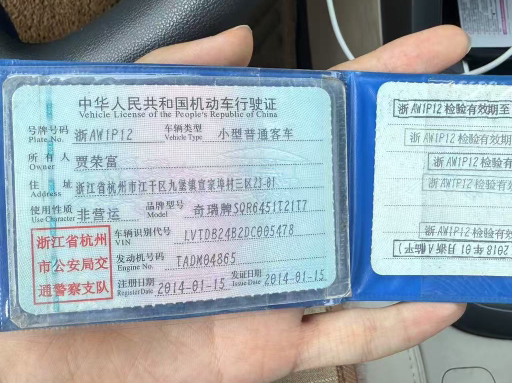 中华人民共和国机动车行驶证
Vehicle License of the People's Republic of China
号牌号码 浙AW1P12 车辆类型 小型普通客车
Plate No. Vehicle Type
所有人 贾荣富
Owner
住址 浙江省杭州市江干区九堡镇宣家埠村三区23-01
Address
使用性质 非营运 品牌型号 奇瑞牌SQR6451T21T7
Use Character Model
浙江省杭州
市公安局交
通警察支队
车辆识别代号 LVTDB24B2DC005478
VIN
发动机号码 TADM04865
Engine No.
注册日期 2014-01-15 发证日期 2014-01-15
Register Date Issue Date
浙AW1P12检验有效期至
浙AW1P12检验有效期
浙AW1P12检验有效
浙AW1P12检验有效
浙AW1P12检验有效
2018年01月浙A临平